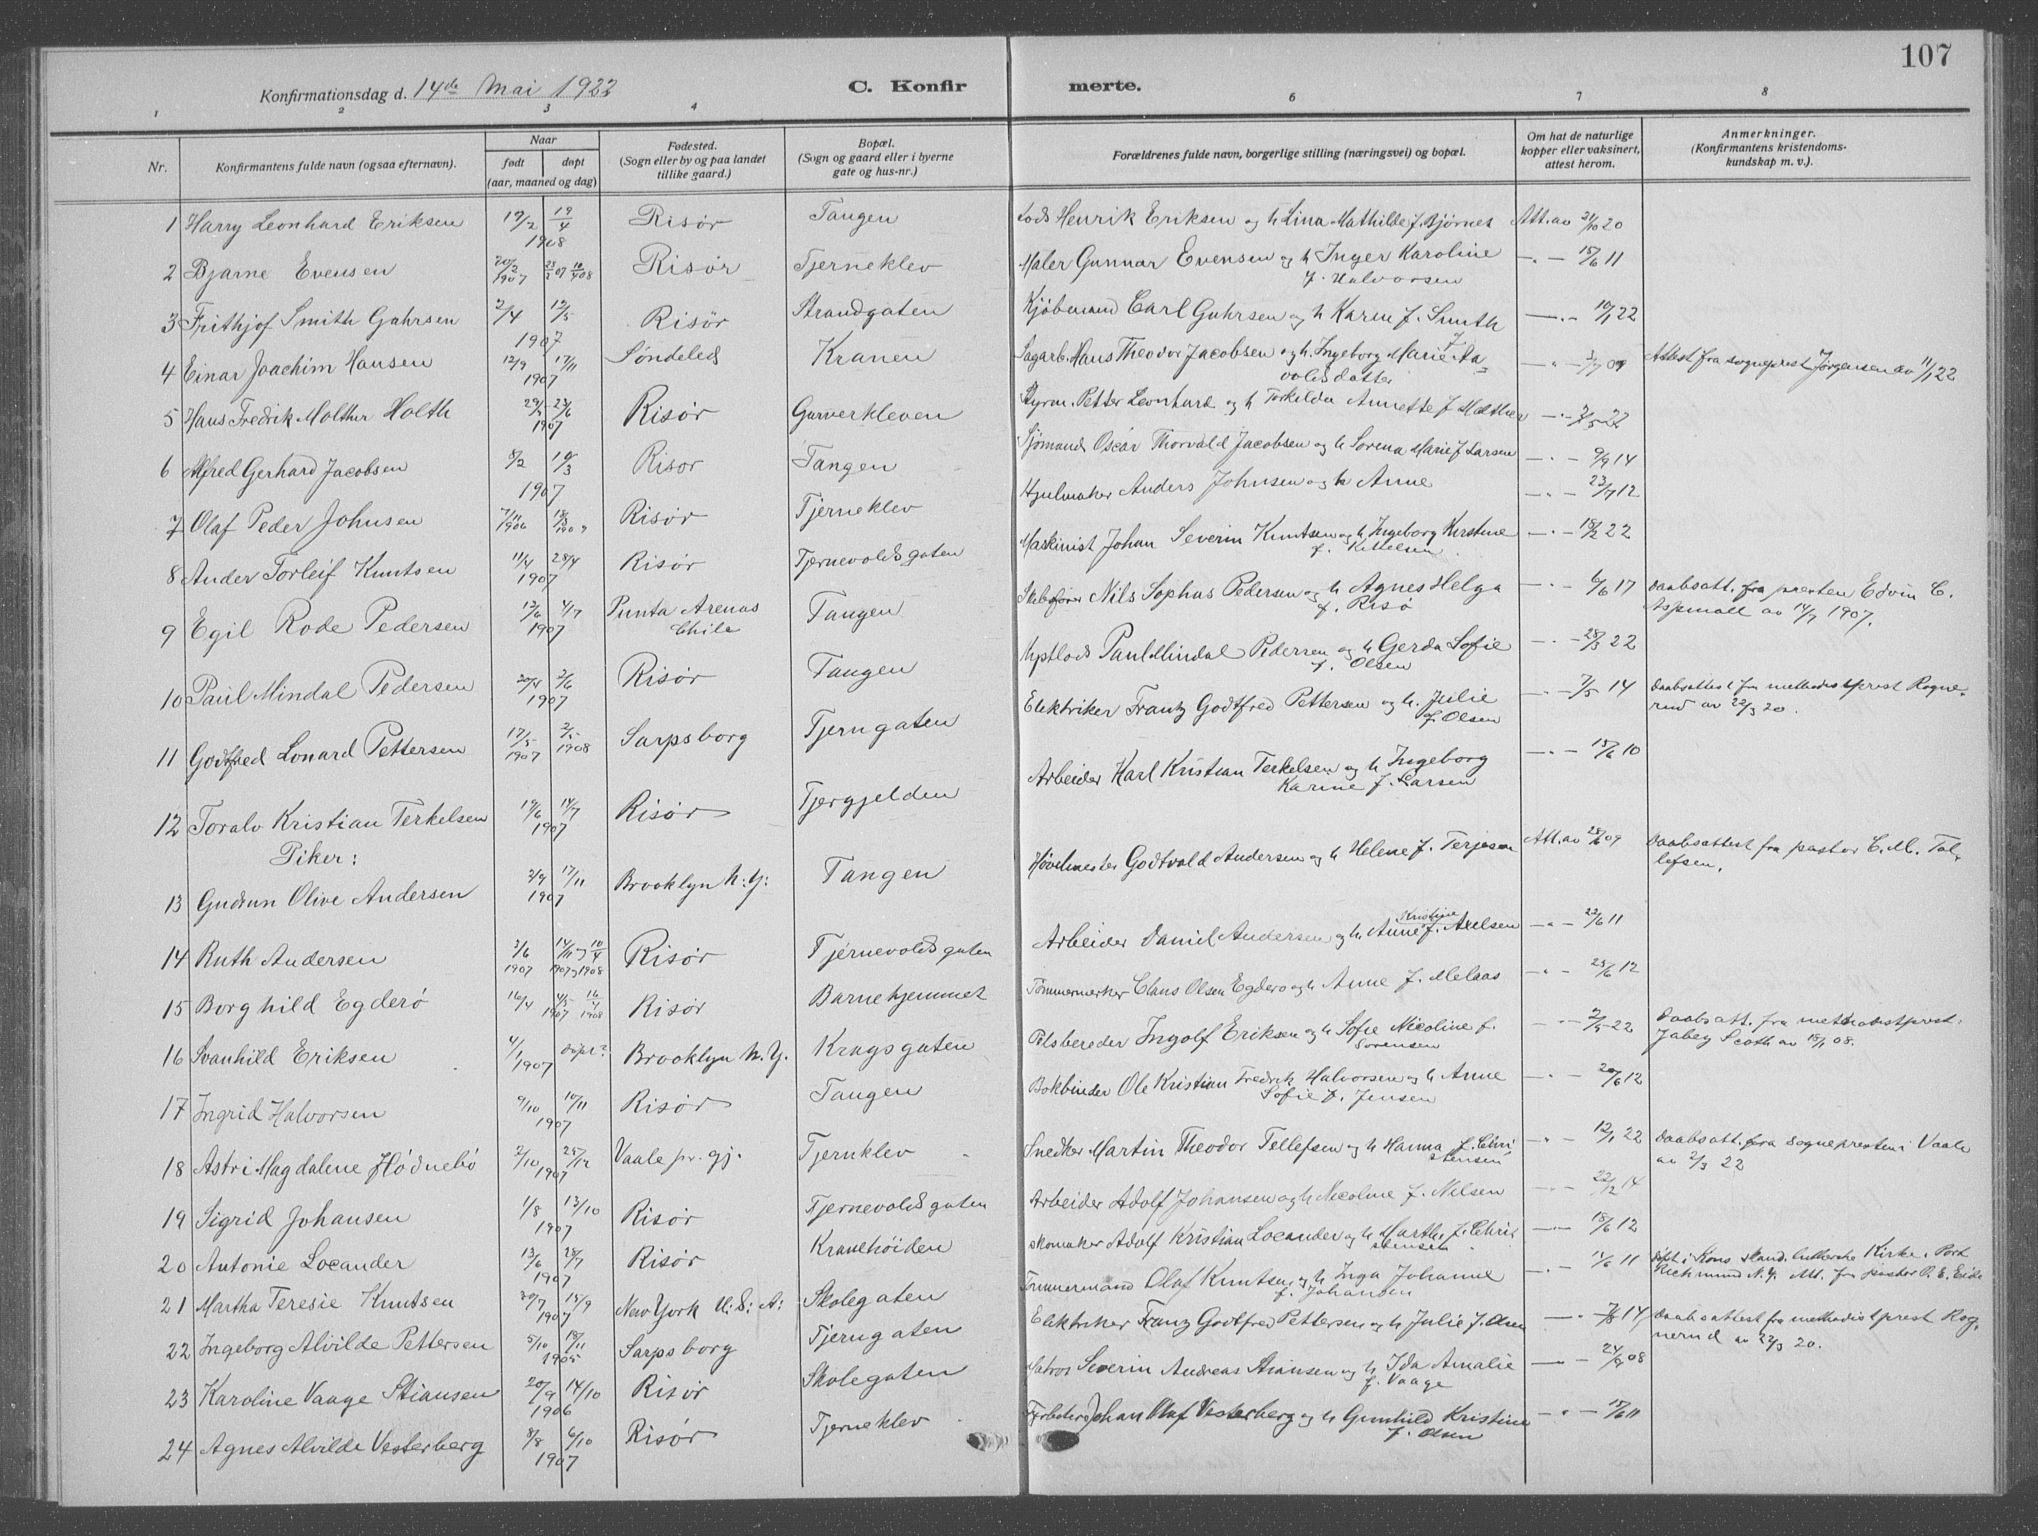 107
Konfirmationsdag d. 14de Mai 1922
C. Konfirmerte.
1 2 3 4 5 6 7 8
Nr.
Konfirmantens fulde navn (ogsaa efternavn).
Naar
født døpt
(aar, maaned og dag)
Fødested.
(Sogn eller by og paa landet
tillike gaard.)
Bopæl.
(Sogn og gaard eller i byerne
gate og hus-nr.)
Forældrenes fulde navn, borgerlige stilling (næringsvei) og bopæl.
Om hat de naturlige
kopper eller vaksinert,
attest herom.
Anmerkninger.
(Konfirmantens kristendoms-
kundskap m. v.).
1 Harry Leonhard Eriksen 19/2 19/4 1908 Risør Tangen Lods Henrik Eriksen og h Lina Mathilde f. Bjørnes Att. av 21/10 20
2 Bjarne Evensen 20/2 1907 10/4 08 Risør Tjerneklev Maler Gunnar Evensen og h Inger Karoline f. Halvorsen 15/6 11
3 Frithjof Smith Guhrsen 2/4 12/5 1907 Risør Strandgaten Kjøbmand Carl Guhrsen og h Karen f. Smith 22
4 Einar Joachim Hansen 12/9 17/11 1907 Søndeled Kranen Sagarb. Hans Theodor Jacobsen og h. Ingeborg Marie Aavoldsdatter 09 Attest fra sogneprest Jørgensen av 11/1 22
5 Hans Fredrik Molther Holth 23/6 1907 Risør Garverkleven Styrm. Petter Leonhard og h Torkilda Annette f Mølther 2/5 22
6 Alfred Gerhard Jacobsen 8/2 10/3 1907 Risør Tangen Sjømand Oscar Thorvald Jacobsen og h Sorena Marie f Larsen 9/9 14
7 Olaf Peder Johnsen 7/11 1906 Risør Tjerneklev Hjulmaker Anders Johnsen og h Anne 23/7 12
8 Ander Torleif Knutsen 11/4 28/4 1907 Risør Tjernevoldsgaten Maskinist Johan Severin Knutsen og h. Ingeborg Kirstine f. Kittelsen 18/2 22
9 Egil Rode Pedersen 13/6 4/7 1907 Punta Arenas Chile Tangen Skibsfører Nils Sophus Pedersen og h Agnes Helga f. Risø 6/6 17 Daabsatt. fra presten Edvin C. Aspmall av 14/7 1907.
10 Paul Mindal Pedersen 20/4 2/6 1907 Risør Tangen Paul Mindal Pedersen og h Gerda Sofie f. Olsen 28/3 22
11 Godtfred Lonard Pettersen 17/5 1907 2/5 1908 Sarpsborg Tjerngaten Elektriker Frantz Godtfred Pettersen og h. Julie f. Olsen 7/5 14 Daabsattest fra methodistprest Rognerud av 22/3 20.
12 Toralv Kristian Terkelsen 19/6 14/7 1907 Risør Tjerngjelden Arbeider Karl Kristian Terkelsen og h Ingeborg Karine f. Larsen 15/6 10
Piker:
13 Gudrun Olive Andersen 2/9 17/11 1907 Brooklyn N: Y: Tangen Høvelmester Godtvald Andersen og h Helene f. Terjesen Att. av 28/6 09 Daabsattest fra pastor C. M. Tollefsen.
14 Ruth Andersen 3/6 1907 14/11 1907 og 10/4 1908 Risør Tjernevoldsgaten Arbeider Daniel Andersen og h Anne Kristine f. Axelsen 22/6 11
15 Borghild Egderø 16/4 4/5 1907 16/4 1908 Risør Barnehjemmet Tømmermerker Claus Olsen Egderø og h Anne f. Melaas 25/6 12
16 Svanhild Eriksen 4/1 1907 døpt? Brooklyn N. Y. Kragsgaten Pølsbereder Ingolf Eriksen og h Sofie Nicoline f. Sørensen 2/5 22 Daabsatt. fra methodistprest. Jabez Scoth av 15/1 08.
17 Ingrid Halvorsen 9/10 10/11 1907 Risør Tangen Bokbinder Ole Kristian Fredrik Halvorsen og h Anne Sofie f. Jensen 20/6 12
18 Astri Magdalene Hødnebø 2/10 25/12 1907 Vaale pr. gj. Tjernklev Snedker Martin Theodor Tellefsen og h Hanna f. Christensen 12/1 22 Daabsatt. fra sognepresten i Vaale av 2/3 22
19 Sigrid Johansen 1/8 13/10 1907 Risør Tjernevoldsgaten Arbeider Adolf Johansen og h Nicoline f. Nilsen 22/12 14
20 Antonie Locander 13/6 28/7 1907 Risør Kranehøiden Skomaker Adolf Kristian Locander og h Marthe f. Christensen 18/6 12
21 Martha Teresie Knutsen 20/7 15/9 1907 New York U: S: A: Skolegaten Tømmermand Olaf Knutsen og h Inga Johanne f. Johansen 14/6 11 Døpt i Sions skand. lutherske Kirke, Port Richmond N. Y. Att. fra pastor P. E. Eide
22 Ingeborg Alvilde Pettersen 5/10 18/11 1905 Sarpsborg Tjerngaten Elektriker Franz Godtfred Pettersen og h Julie f. Olsen 14 Daabsattest fra methodistprest Rognerud av 22/3 20.
23 Karoline Vaage Stiansen 20/9 14/10 1906 Risør Skolegaten Matros Severin Andreas Stiansen og h Ida Amalie f. Vaage 08
24 Agnes Alvilde Vesterberg 8/8 6/10 1907 Risør Tjerneklev Johan Olaf Vesterberg og h Gunhild Kristine f. Olsen 15/6 11